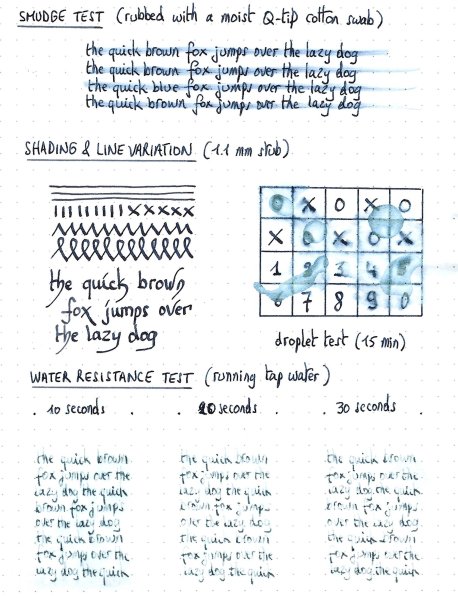 SMUDGE TEST (rubbed with a moist Q-tip cotton swab)
the quick brown fox jumps over the lazy dog
the quick brown fox jumps over the lazy dog
the quick blue fox jumps over the lazy dog
the quick brown fox jumps over the lazy dog
SHADING & LINE VARIATION (1.1 mm stub)
the quick brown
fox jumps over
the lazy dog
O X O X O
X O X O X
1 2 3 4 5
6 7 8 9 0
droplet test (15 min)
WATER RESISTANCE TEST (running tap water)
10 seconds
20 seconds
30 seconds
the quick brown
fox jumps over the
lazy dog the quick
brown fox jumps
over the lazy dog
the quick brown
fox jumps over the
lazy dog the quick
the quick brown
fox jumps over the
lazy dog the quick
brown fox jumps
over the lazy dog
the quick brown
fox jumps over the
lazy dog the quick
the quick brown
fox jumps over the
lazy dog the quick
brown fox jumps
over the lazy dog
the quick brown
fox jumps over the
lazy dog the quick